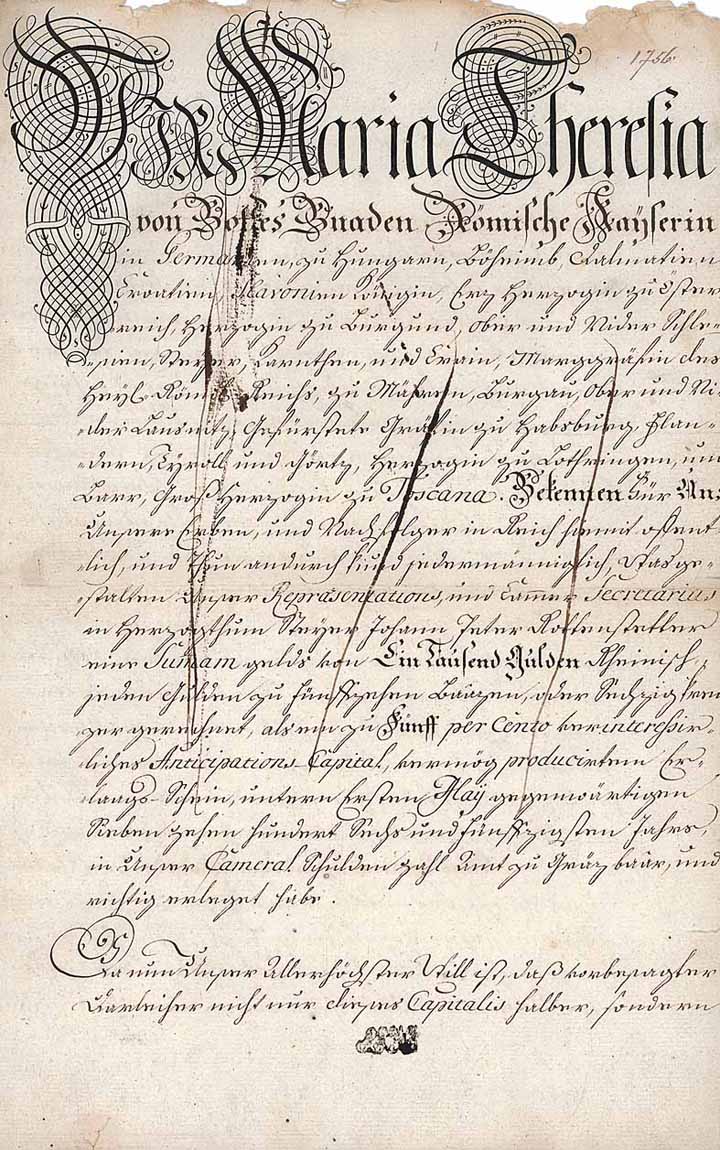 1756
WIR Maria Theresia
von Gottes Gnaden Römische Kayserin
in Germanien, zu Hungarn, Böheimb, Dalmatien
Croatien, Slavonien Königin, Erz Herzogin zu Öster
reich, Herzogin zu Burgund, Ober und Nider Schle-
-sien, Steyer, Kärnthen, und Crain, Marggräfin des
Heyl: Röm: Reichs, zu Mähren, Burgau, Ober und Ni-
-der Lausnitz, Gefürstete Gräfin zu Habsburg, Flan-
-dern, Tyroll und Görtz, Herzogin zu Lothringen, und
Barr, Groß Herzogin zu Toscana. Bekennen für Uns
Unsere Erben, und Nachfolger in Reich hiemit offent-
-lich, und Thun andurch kund jedermänniglich, Wasge-
-stalten Unser Repræsentations, und Cammer Secretarius
in Herzogthum Steyer Johann Peter Rottenstetter
eine Summam gelds von Ein Tausend Gulden Rheinisch,
jeden Gulden zu fünffzehen Baazen, oder Sechzig Kreu
zer gerechnet, als ein zu Fünff per Cento verinteressir-
-liches Anticipations-Capital, vermög producirtem Er-
-laags-Schein, untern Ersten May gegenwärtigen
Sieben zehen hundert Sechs und fünffzigsten Jahrs,
in Unser Cameral Schulden zahl Amt zu Gräz baar, und
richtig erleget habe.
Da nun Unser Allerhöchster Will ist, daß vorbesagter
Darleiher nicht nur dieses Capitalis halber, sondern